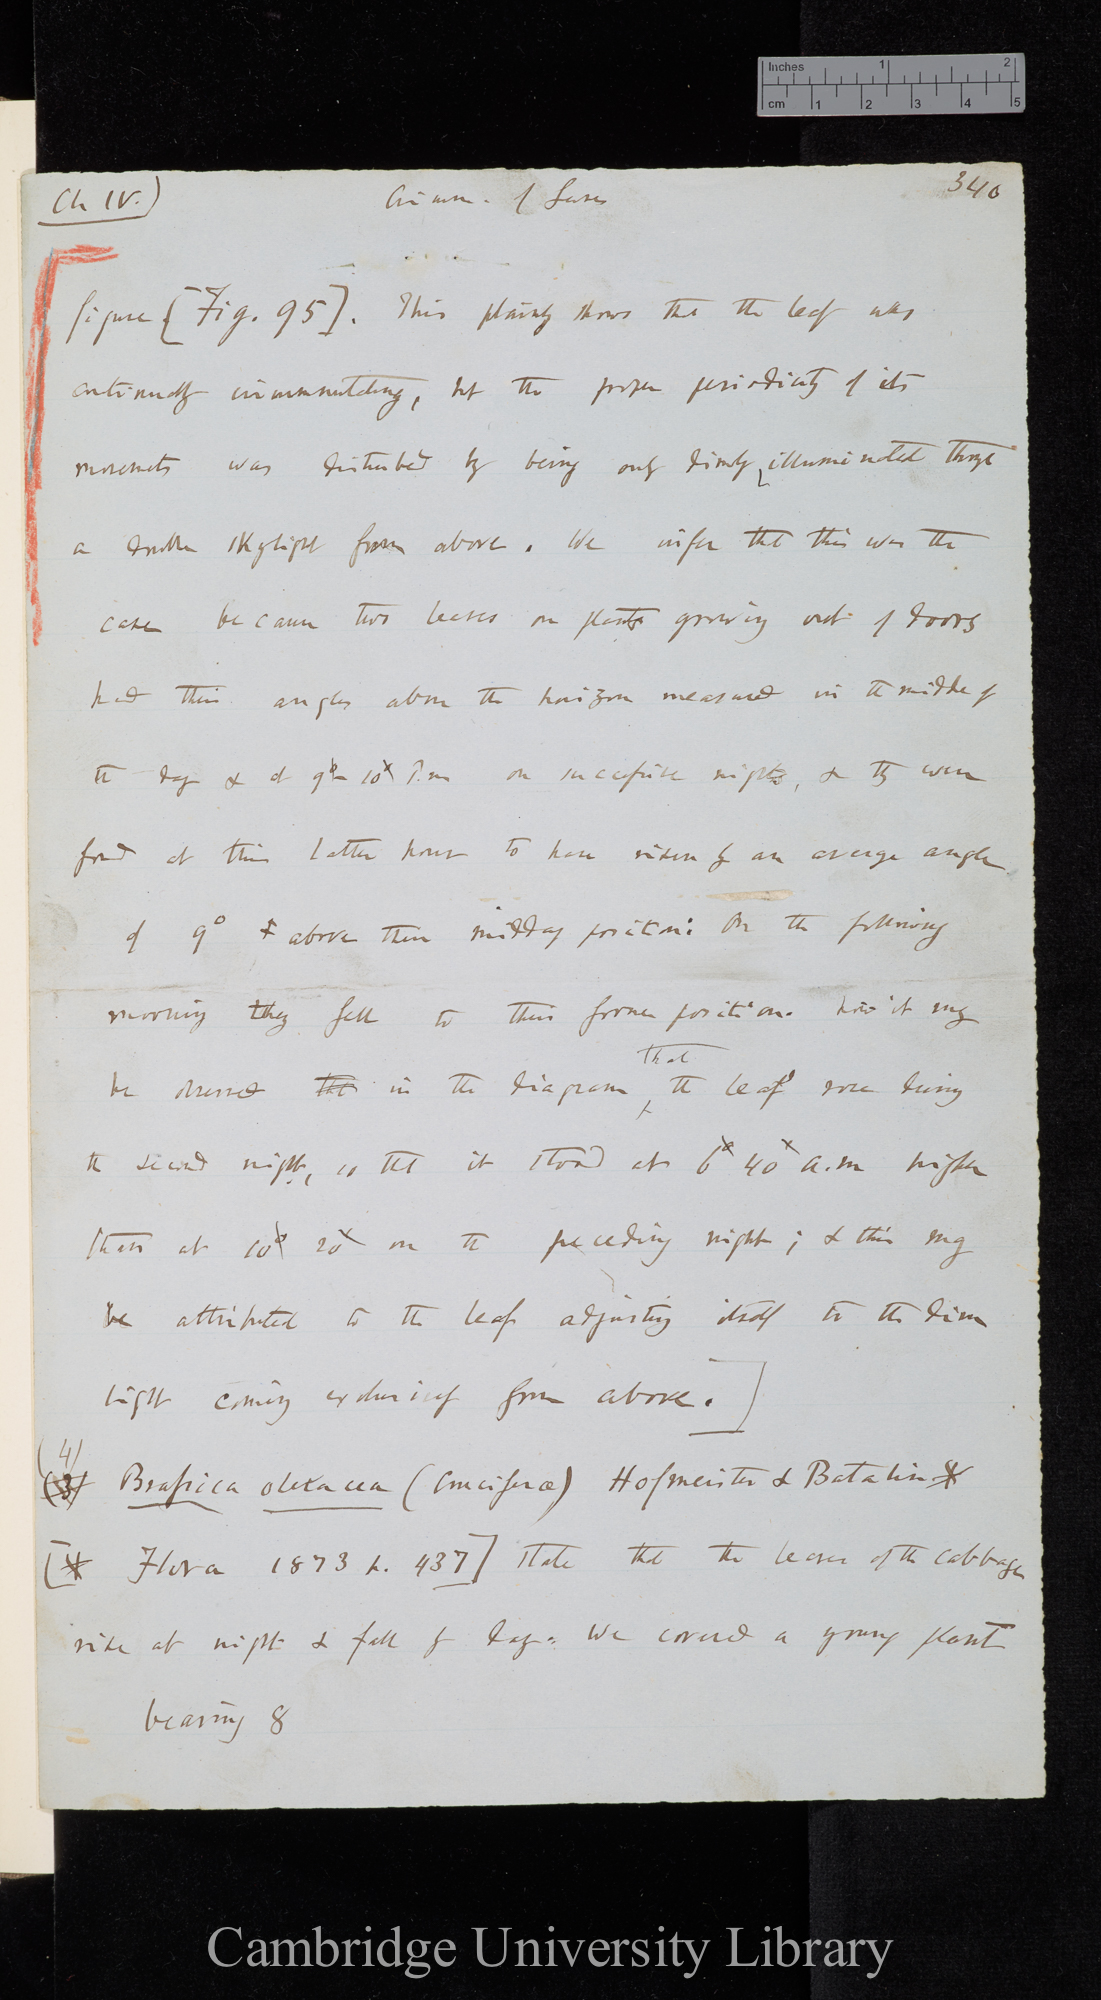 Inches 1 2
cm 1 2 3 4 5
Ch IV.) Circumn. of Leaves 340
figure [Fig. 95]. This plainly shows that the leaf was
continually circumnutating, but the proper periodicity of its
movements was disturbed by being only dimly illuminated through
a double skylight from above. We infer that this was the
case because two leaves on plants growing out of doors
had their angles above the horizon measured in the middle of
the day & at 9° 10' P.m on successive nights, & they were
found at this latter hour to have risen by an average angle
of 9° above their midday position: On the following
morning they fell to their former position. Now it may
be observed that in the diagram that the leaf rose during
the second night, so that it stood at 6° 40' a.m higher
than at 10° 20' on the preceding night; & this may
be attributed to the leaf adjusting itself to the dim
light coming exclusively from above.]
(4)
(3) Brassica oleracea (Cruciferæ) Hofmeister & Batalin *
[* Flora 1873 p. 437] state that the leaves of the cabbage
rise at night & fall by day. We covered a young plant
bearing 8
Cambridge University Library